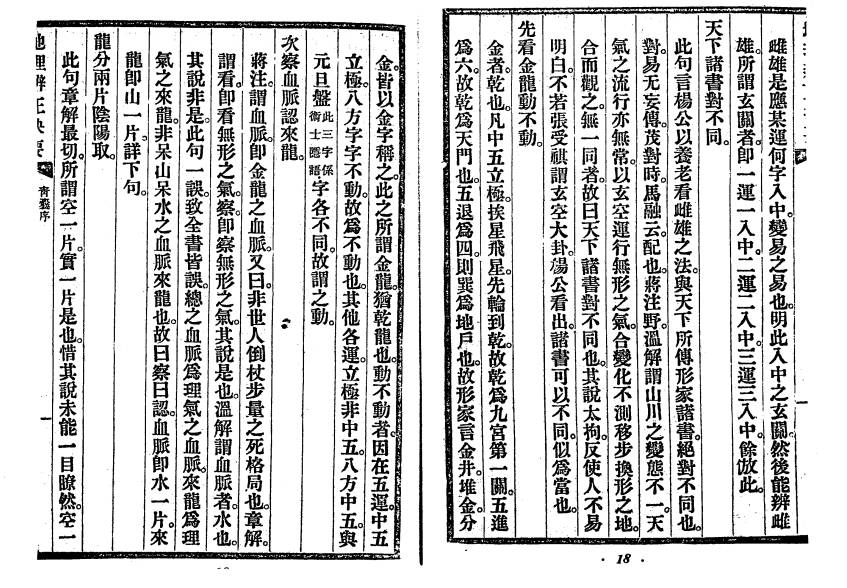 雌雄是應某運何字入中。變易之易也。明此入中之玄關。然後能辨雌
雄。所謂玄關者。卽一運一入中。二運二入中。三運三入中。餘倣此。
天下諸書對不同。
此句言楊公以養老看雌雄之法。與天下所傳形家諸書。絕對不同也。
對。易无妄傳茂對時。馬融云。配也。蔣注野。溫解謂山川之變態不一。天
氣之流行亦無常。以玄空運行無形之氣。合變化不測移步換形之地。
合而觀之。無一同者。故曰天下諸書對不同也。其說太拘。反使人不易
明白。不若張受祺謂玄空大卦。楊公看出。諸書可以不同。似爲當也。
先看金龍動不動。
金者。乾也。凡中五立極。挨星飛星。先輪到乾。故乾爲九宮第一關。五進
爲六。故乾爲天門也。五退爲四。則巽爲地戶也。故形家言金井堆金分
· 18 ·
金。皆以金字稱之。此之所謂金龍。猶乾龍也。動不動者。因在五運。中五
立極。八方字字不動。故爲不動也。其他各運立極。非中五。八方中五。與
元旦盤此三字係術士隱語字各不同。故謂之動。
次察血脈認來龍。
蔣注謂血脈。卽金龍之血脈。又曰。非世人倒杖步量之死格局也。章解。
謂看。卽看無形之氣。察。卽察無形之氣。其說是也。溫解謂血脈者。水也。
其說非是。此句一誤。致全書皆誤。總之血脈爲理氣之血脈。來龍爲理
氣之來龍。非呆山呆水之血脈來龍也。故曰察曰認。血脈卽水一片。來
龍卽山一片。詳下句。
龍分兩片陰陽取。
此句章解最切。所謂空一片。實一片是也。惜其說未能一目瞭然。空一
地理辨正抉要
靑囊序
一